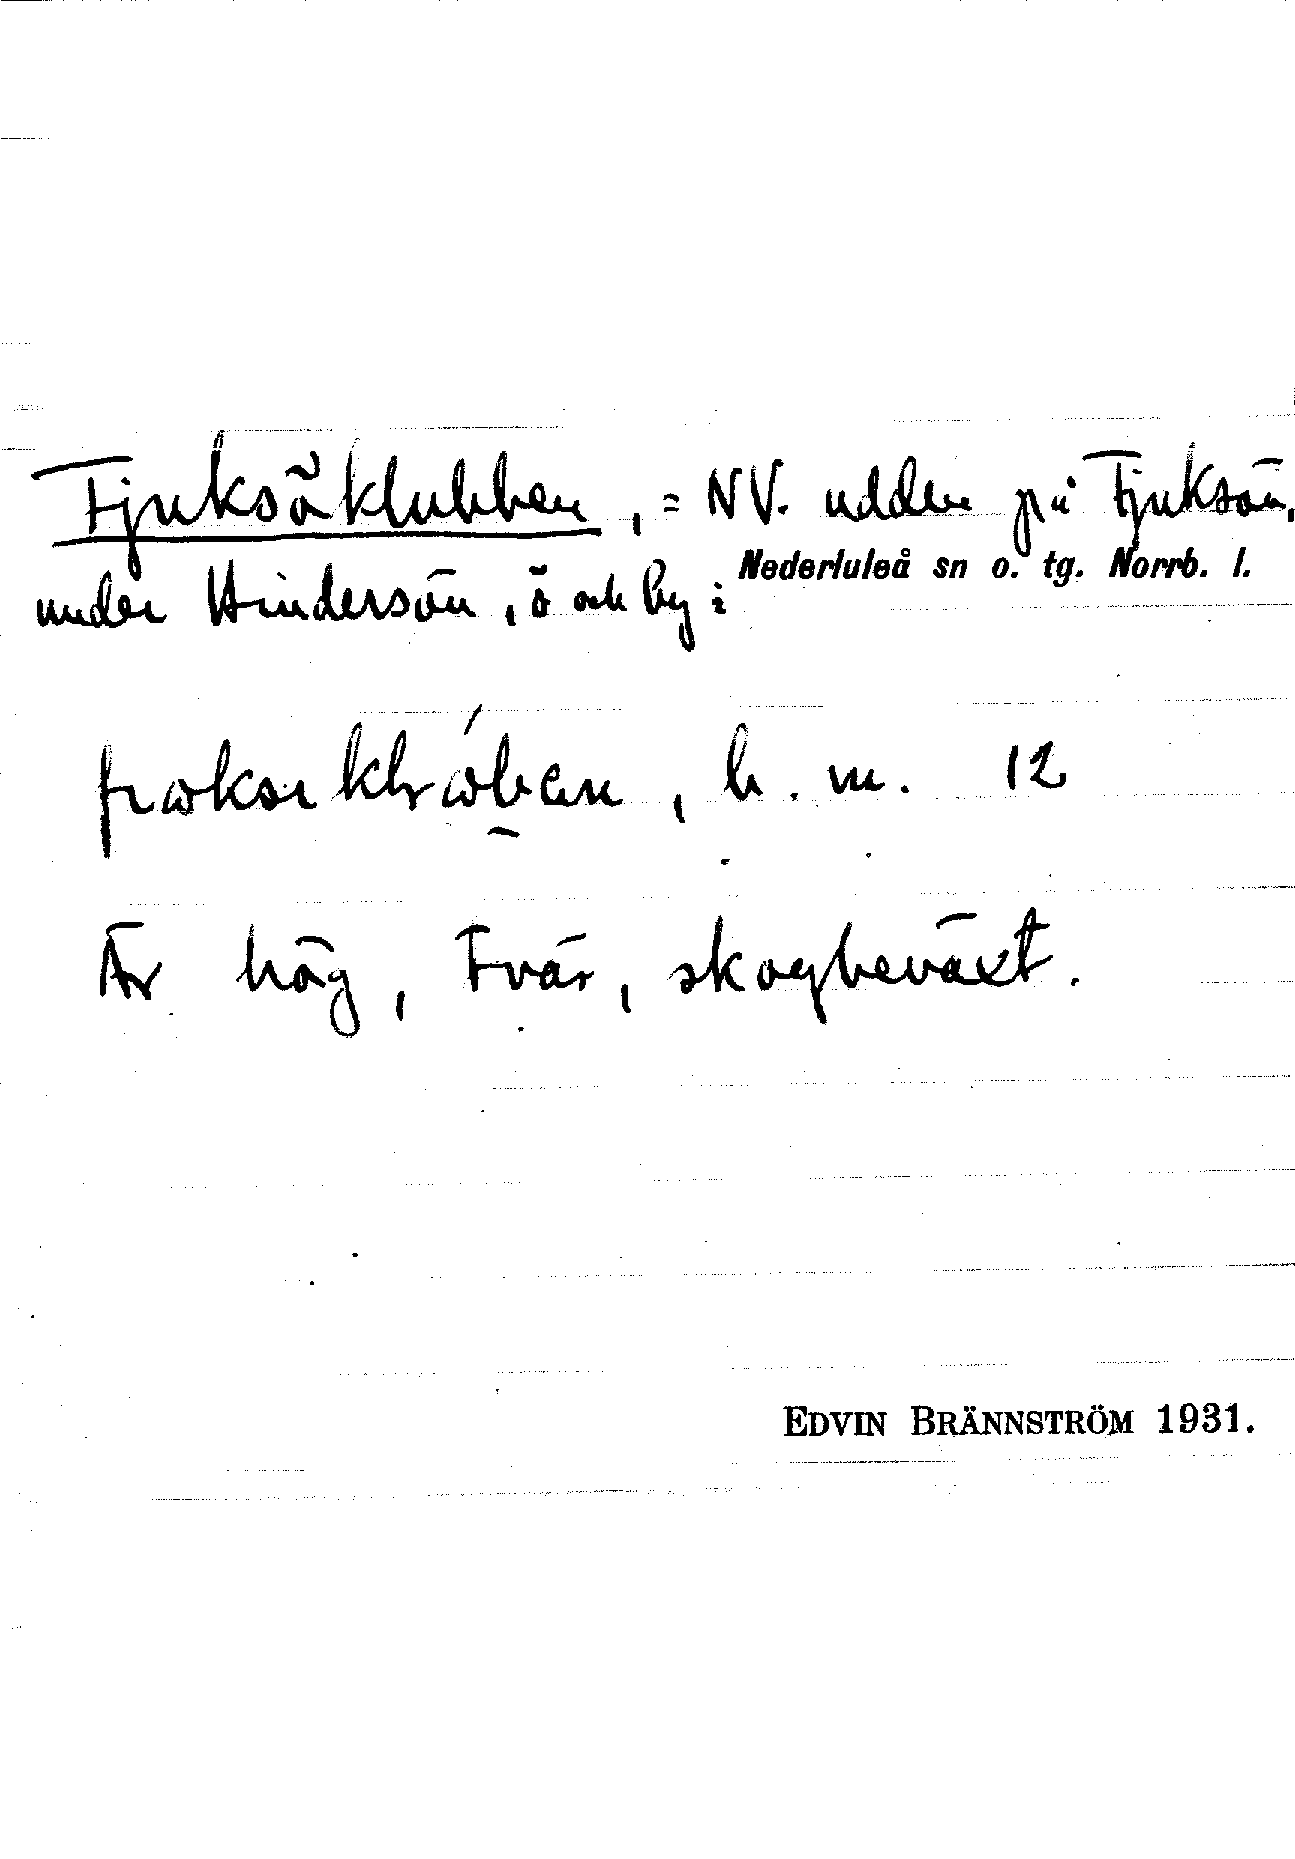 Tjuksöklubben, = NV. udden på Tjuksön,
under Hindersön, ö och by i Nederluleå sn o. tg. Norrb. l.
b. m. 12
Är hög, tvär, skogbeväxt.
EDVIN BRÄNNSTRÖM 1931.